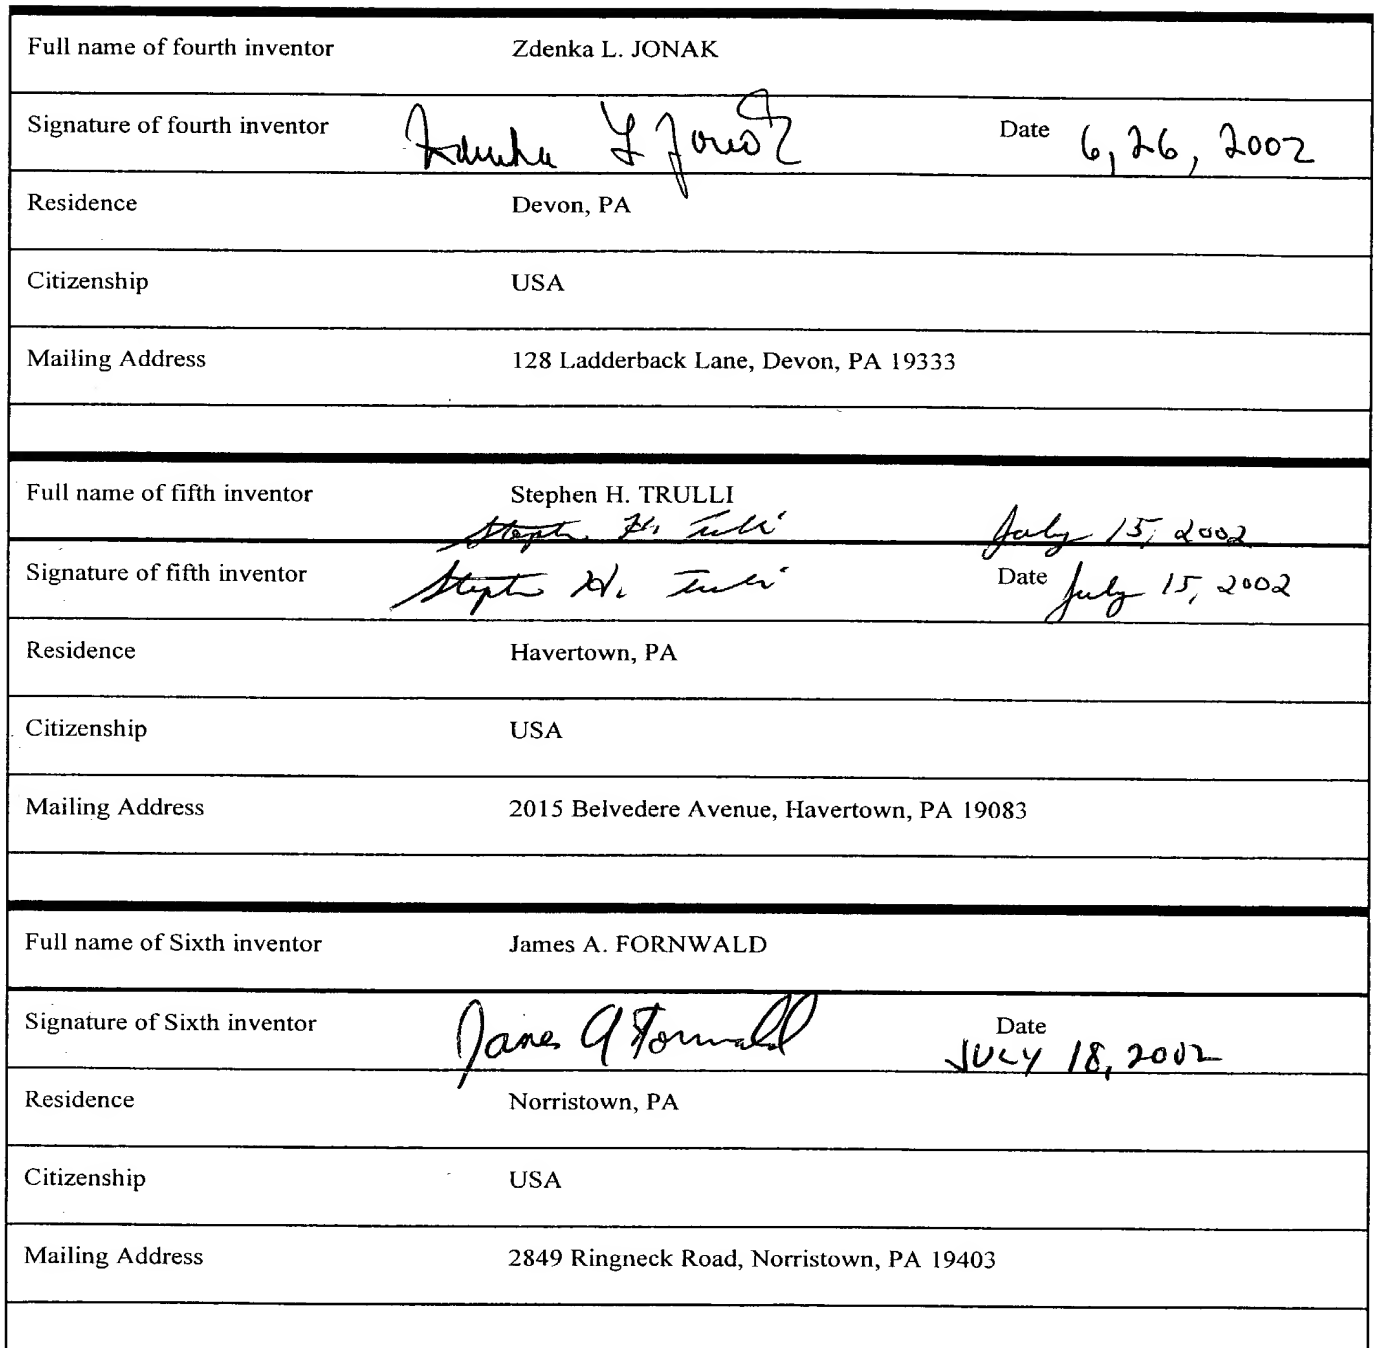 Full name of fourth inventor Zdenka L. JONAK
Signature of fourth inventor Zdenka L Jonak Date 6, 26, 2002
Residence Devon, PA
Citizenship USA
Mailing Address 128 Ladderback Lane, Devon, PA 19333
Full name of fifth inventor Stephen H. TRULLI
Stephen H. Trulli July 15, 2002
Signature of fifth inventor Stephen H. Trulli Date July 15, 2002
Residence Havertown, PA
Citizenship USA
Mailing Address 2015 Belvedere Avenue, Havertown, PA 19083
Full name of Sixth inventor James A. FORNWALD
Signature of Sixth inventor James A Fornwald Date
JULY 18, 2002
Residence Norristown, PA
Citizenship USA
Mailing Address 2849 Ringneck Road, Norristown, PA 19403